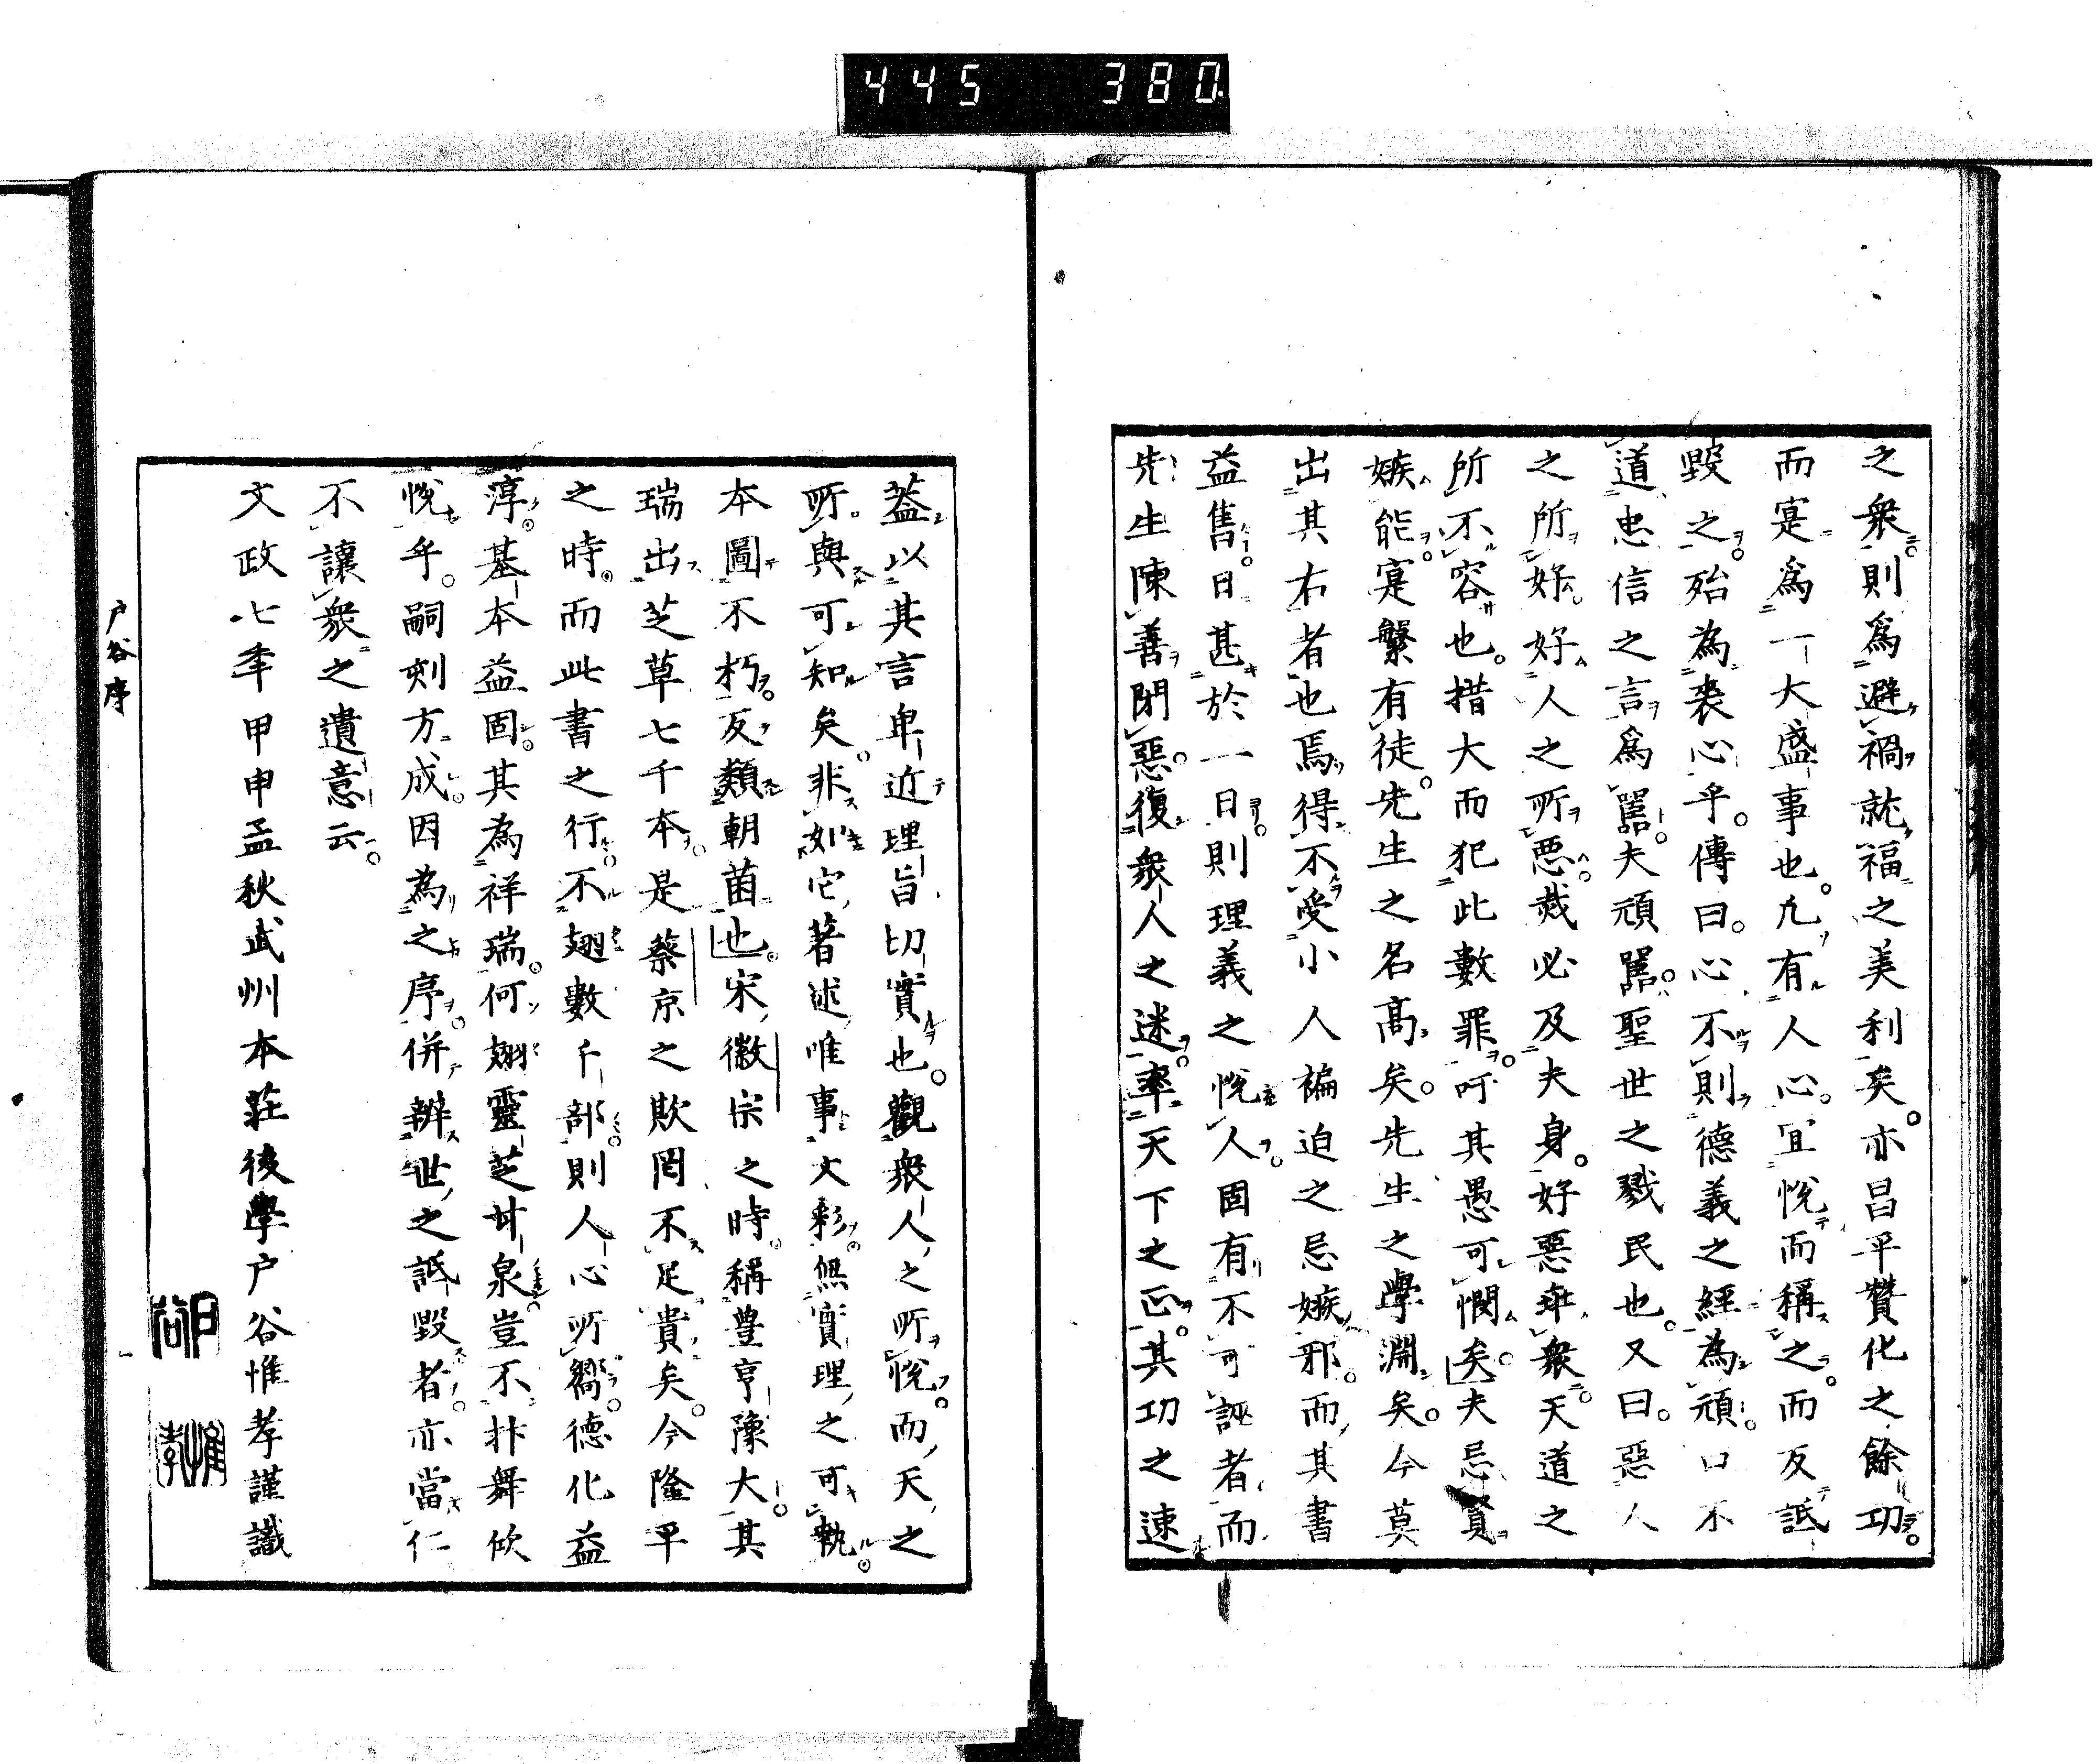 445 380
之衆則爲避禍就福之美利矣亦昌平贊化之餘功
而寔爲一大盛事也凡有人心宜悅而稱之而反詆
毀之殆為喪心乎傳曰心不則德義之經為頑口不
道忠信之言爲嚚夫頑嚚聖世之戮民也又曰惡人
之所好好人之所惡烖必及夫身好惡乖衆天道之
所不容也措大而犯此數罪吁其愚可憫矣夫忌賢
嫉能寔繁有徒先生之名高矣先生之學淵矣今莫
出其右者也焉得不受小人褊迫之忌嫉邪而其書
益售日甚於一日則理義之悅人固有不可誣者而
先生陳善閉惡復衆人之迷率天下之正其功之速
蓋以其言卑近理旨切實也觀衆人之所悅而天之
所與可知矣非如它著述唯事文彩無實理之可執
本圖不朽反類朝菌也宋徽宗之時稱豊亨豫大其
瑞出芝草七千本是蔡京之欺罔不足貴矣今隆平
之時而此書之行不翅數千部則人心所嚮德化益
淳基本益固其為祥瑞何翅靈芝甘泉豈不抃舞欣
悅乎嗣刻方成因為之序併辨世之詆毀者亦當仁
不讓衆之遺意云
文政七年甲申孟秋武州本莊後學户谷惟孝謹識
户谷序
户谷
惟孝